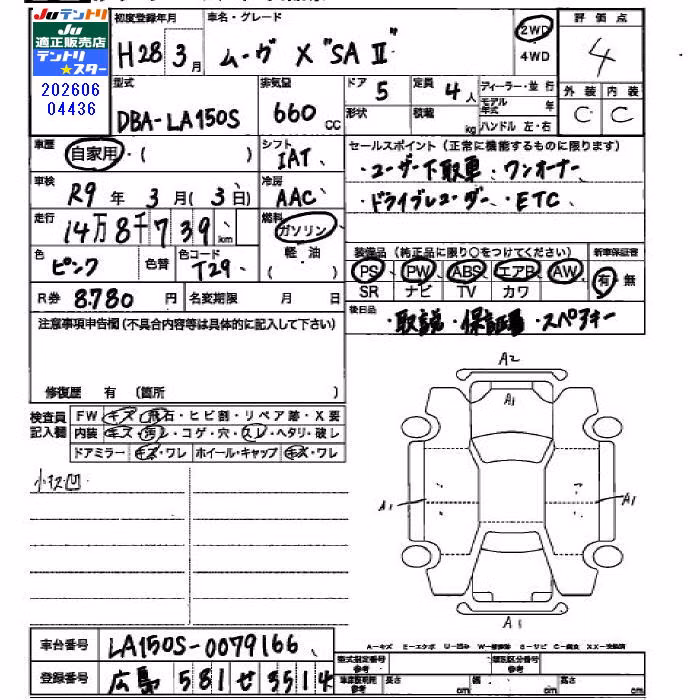 Juテントリ
Ju
適正販売店
テントリ
★スター
202606
04436
初度登録年月
H28年3月
車名・グレード
ムーヴ X "SA Ⅱ"
2WD
4WD
評価点
4
外装 内装
C C
型式
DBA-LA150S
排気量
660 cc
ドア 5
形状
定員 4人
積載 kg
ディーラー・並行
モデル年式 年
ハンドル 左・右
車歴 自家用・( )
シフト IAT
車検 R9年3月(3日)
冷房 AAC
走行 14万8千739km
燃料 ガソリン
軽油
( )
色 ピンク 色替
色コード T29
R券 8.780円
名変期限 月 日
セールスポイント(正常に機能するものに限ります)
・ユーザー下取車・ワンオーナー
・ドライブレコーダー・ETC
装備品(純正品に限り○をつけてください)
新車保証書
PS PW ABS エアB AW
有・無
SR ナビ TV カワ
後日品
・取説・保証書・スペアキー
注意事項申告欄(不具合内容等は具体的に記入して下さい)
修復歴 有 (箇所 )
検査員記入欄
FW キズ・飛石・ヒビ割・リペア跡・X要
内装 キズ・汚レ・コゲ・穴・スレ・ヘタリ・破レ
ドアミラー キズ・ワレ ホイール・キャップ キズ・ワレ
小キズ凹
A2
A1
A1
A1
A1
A-キズ E-エクボ U-凹み W-補修跡 S-サビ C-腐食 XX-交換済
車台番号 LA150S-0079166
登録番号 広島 581 せ 3514
型式指定番号
参考
類別区分番号
参考
車庫証明用
参考
長さ cm
幅 cm
高さ cm